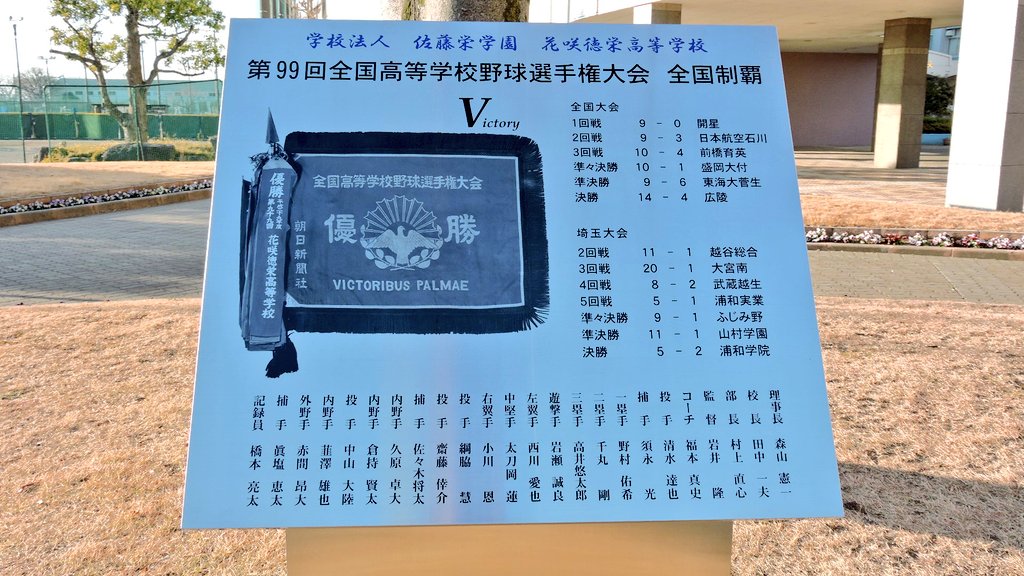 学校法人 佐藤栄学園 花咲徳栄高等学校
第99回全国高等学校野球選手権大会 全国制覇
Victory
優勝
花咲徳栄高等学校
全国高等学校野球選手権大会
優勝
朝日新聞社
VICTORIBUS PALMAE
全国大会
1回戦 9 - 0 開星
2回戦 9 - 3 日本航空石川
3回戦 10 - 4 前橋育英
準々決勝 10 - 1 盛岡大付
準決勝 9 - 6 東海大菅生
決勝 14 - 4 広陵
埼玉大会
2回戦 11 - 1 越谷総合
3回戦 20 - 1 大宮南
4回戦 8 - 2 武蔵越生
5回戦 5 - 1 浦和実業
準々決勝 9 - 1 ふじみ野
準決勝 11 - 1 山村学園
決勝 5 - 2 浦和学院
理事長 森山 憲一
校長 田中 一夫
部長 村上 直心
監督 岩井 隆
コーチ 福本 真史
投手 清水 達也
捕手 須永 光
一塁手 野村 佑希
二塁手 千丸 剛
三塁手 高井 悠太郎
遊撃手 岩瀬 誠良
左翼手 西川 愛也
中堅手 太刀岡 蓮
右翼手 小川 恩
投手 綱脇 慧
投手 齋藤 倖介
捕手 佐々木 将太
内野手 久原 卓大
内野手 倉持 賢太
投手 中山 大陸
内野手 韮澤 雄也
外野手 赤間 昂大
捕手 眞塩 恵太
記録員 橋本 亮太